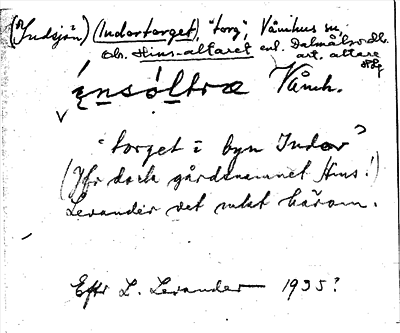 (Indsjön) (Indortorget), "torg", Våmhus sn,
ob. Hins-altaret enl. Dalmålsordb.
art. altare
ínsóltræ Våmh.
"torget i byn Indor"?
(Jfr dock gårdsnamnet Hins!)
Levander vet intet härom.
Eftr L. Levander 1935?